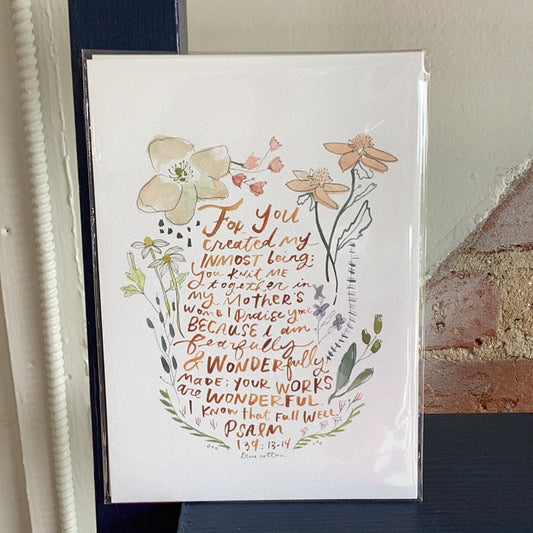 FOR YOU
created my
INMOST being;
you KNIT ME
together in
my MOTHER'S
WOMB. I PRAISE you
BECAUSE I am
fearfully
& WONDERfully
MADE; YOUR WORKS
are WONDERFUL.
I KNOW that Full WELL.
PSALM
139:13-14